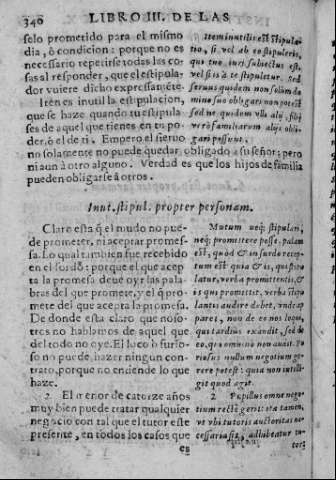 340 LIBRO III. DE LAS
solo prometido para el mismo
dia, ô condicion: porque no es
necessario repetirse todas las co-
sas al responder, que el estipula-
dor vuiere dicho expressaméte.
Iten es inutil la estipulacion,
que se haze quando tu estipula
ses de aquel que tienes en tu po-
der, ò el de ti. Empero el sieruo
no solamente no puede quedar obligado à su señor; pero
ni aun à otro alguno. Verdad es que los hijos de familia
pueden obligarse â otros.
Item inutilis est stipula-
tio, si vel ab eo stipuleris,
qui tuo iuri subiectus est,
vel si is à te stipuletur. sed
seruus quidem non solùm do
mino suo obligari non potest
sed ne quidem vlli alij. filij
verò familiarum alijs obli-
gari possunt.
Inut. stipul. propter personam.
Claro esta q̃ el mudo no pue-
de prometer, ni aceptar promes-
sa. Lo qual tambien fue recebido
en el sordo: porque el que acep
ta la promesa deue oyr las pala
bras del que promete, y el q̃ pro
mete del que acepta la promesa.
De donde esta claro que noso-
tros no hablamos de aquel que
del todo no oye. El loco ò furio-
so no puede, hazer ningun con
trato, porque no entiende lo que
haze.
2. El menor de catorze años
muy bien puede tratar qualquier
negocio con tal que el tutor este
presente, en todos los casos que
es
Mutum neq; stipulari,
neq; promittere posse, palam
est, quòd & in surdo recep-
tum est: quia & is, qui stipu
latur, verba promittentis, &
is qui promittit, verba stipu
lantis audire debet, vnde ap
paret, non de eo nos loqui,
qui tardius exaudit, sed de
eo, qui omnino non audit. Fu
riosus nullum negotium ge-
rere potest: quia non intelli-
git quod agit.
2 Pupillus omne nego-
tium rectè gerit: ita tamen,
vt vbi tutoris auctoritas ne-
cessaria sit, adhibeatur tu-
tor;